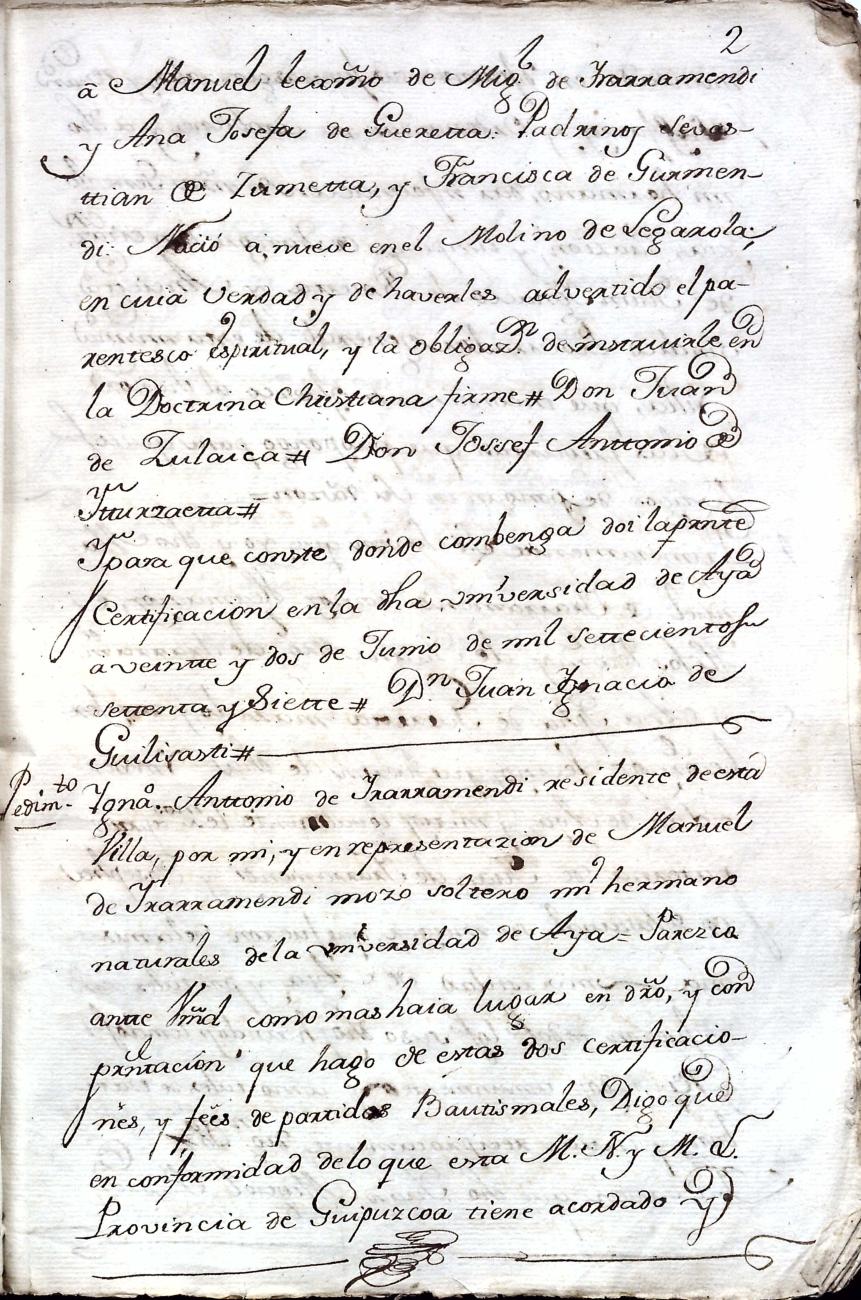 2
a Manuel lexmo de Migl de Yrarramendi
y Ana Josefa de Gueretta: Padrinos Sevas-
ttian de Zumetta, y Francisca de Gurmen-
di: Nació a nueve en el Molino de Legarola;
en cuia verdad y de haverles advertido el pa-
rentesco espiritual, y la obligazn de instruirle en
la Doctrina Christiana firme# Don Juan
de Zulaica# Don Jossef Anttonio de
Ytturzaetta#
Y para que conste donde combenga doi la prnte
Certificacion en la dha universidad de Aya
a veintte y dos de Junio de mil settecientos
settenta y Siette# Dn Juan Ygnacio de
Guilisasti#
Pedimto
Ygnao. Anttonio de Yrarramendi residente, de esta
Villa, por mi, y en representazion de Manuel
de Yrarramendi mozo soltero mi hermano
naturales de la universidad de Aya = Parezco
antte Vmd como mas haia lugar en dro, y con
prntacion que hago de estas dos certificacio-
nes, y fees de partidas Bautismales, Digo que
en conformidad de lo que esta M. N. y M. L.
Provincia de Guipuzcoa tiene acordado y